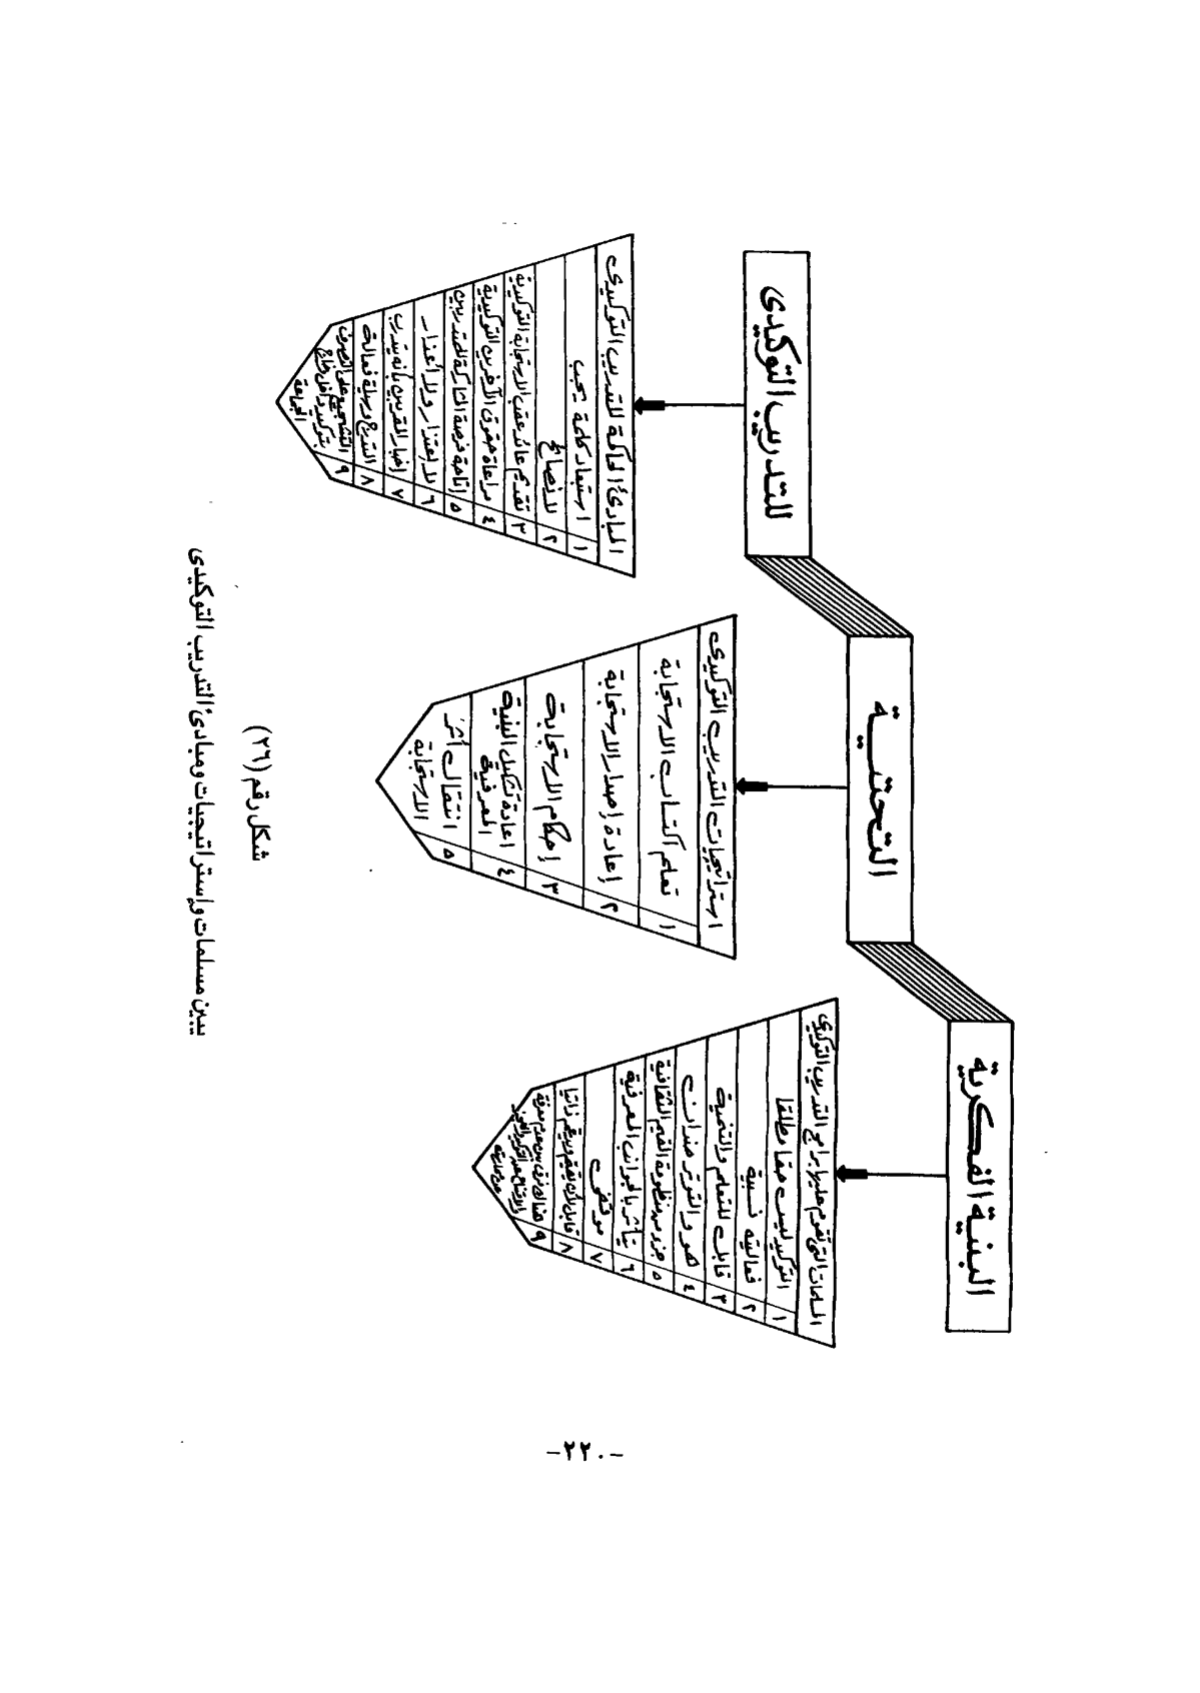 البنية الفكرية
التحتية
للتدريب التوكيدى
المسلمات التى تقوم عليها برامج التدريب التوكيدى
١ التوكيد ليس حقا مطلقا
٢ فعاليته نسبية
٣ قابل للتعلم والتنمية
٤ هو والتوتر ضدان
٥ جزء من منظومة القيم الثقافية
٦ يتأثر بالجوانب المعرفية
٧ موقفى
٨ قابل لأن يقيم ويقيم ذاتيا
٩ هناك فرق بين عدم معرفة
استراتيجيات التدريب التوكيدى
١ تعلم اكتساب الاستجابة
٢ إعادة إصدار الاستجابة
٣ إحكام الاستجابة
٤ اعادة تشكيل البنية
المعرفية
٥ انتقال أثر
الاستجابة
المبادئ الحاكمة للتدريب التوكيدى
١ استبعاد كلمة يجب
٢ لا نصائح
٣ تقديم عائد عقب الاستجابة التوكيدية
٤ مراعاة حقوق الآخرين التوكيدية
٥ إتاحة فرصة المشاركة للمتدربين
٦ لا إعتذار ولا أعذار
٧ إخبار القريبين بأنه يتدرب
٨ التدرج وسيلة فعالة
٩ التشجيع على التصرف
بتوكيد داخل وخارج
الجماعة
شكل رقم (٢٦)
يبين مسلمات وإستراتيجيات ومبادئ التدريب التوكيدى
-٢٢٠-